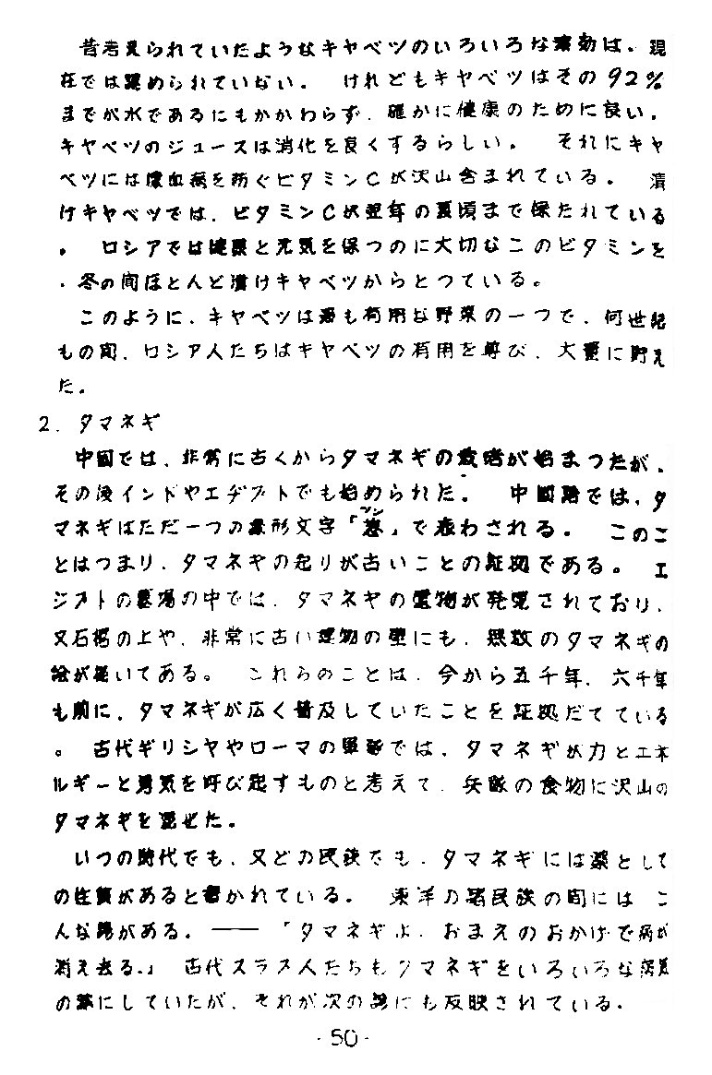 昔考えられていたようなキャベツのいろいろな薬効は、現
在では認められていない。 けれどもキャベツはその92%
までが水であるにもかかわらず、確かに健康のために良い。
キャベツのジュースは消化を良くするらしい。 それにキャ
ベツには壊血病を防ぐビタミンCが沢山含まれている。 漬
けキャベツでは、ビタミンCが翌年の夏頃まで保たれている
。 ロシアでは健康と元気を保つのに大切なこのビタミンを
、冬の間ほとんど漬けキャベツからとつている。
このように、キャベツは最も有用な野菜の一つで、何世紀
もの間、ロシア人たちはキャベツの有用を尊び、大量に貯え
た。
2. タマネギ
中国では、非常に古くからタマネギの栽培が始まつたが、
その後インドやエヂプトでも始められた。 中国語では、タ
マネギはただ一つの象形文字「葱」で表わされる。 このこ
ツン
とはつまり、タマネギの起りが古いことの証拠である。 エ
ジプトの墓場の中では、タマネギの遺物が発見されており、
又石棺の上や、非常に古い建物の壁にも、無数のタマネギの
絵が描いてある。 これらのことは、今から五千年、六千年
も前に、タマネギが広く普及していたことを証拠だてている
。 古代ギリシヤやローマの軍隊では、タマネギが力とエネ
ルギーと勇気を呼び起すものと考えて、兵隊の食物に沢山の
タマネギを混ぜた。
いつの時代でも、又どの民族でも、タマネギには薬として
の性質があると書かれている。 東洋の諸民族の間には こ
んな諺がある。――「タマネギよ、おまえのおかげで病が
消え去る。」 古代スラブ人たちもタマネギをいろいろな病気
の薬にしていたが、それが次の諺にも反映されている。
- 50 -